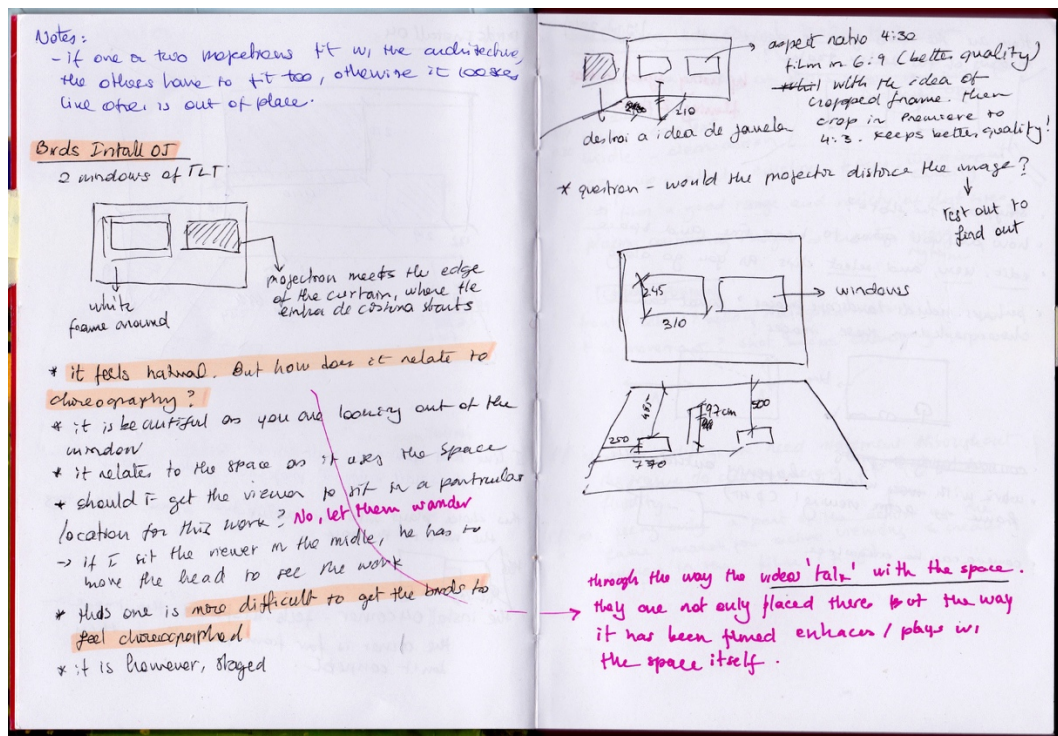 Notes:
- if one or two projections fit w, the architecture,
the others have to fit too, otherwise it looses
like other is out of place.
Birds Intall 05
2 windows of TLT
white
frame around
projection meets the edge
of the curtain, where the
entra de costina starts
* it feels natural. But how does it relate to
choreography?
* it is beautiful as you are looking out of the
window
* it relates to the space as it uses the space
* should I get the viewer to sit in a particular
location for this work? No, let them wander
-> if I sit the viewer in the midle, he has to
move the head to see the work
* this one is more difficult to get the birds to
feel choreographed
* it is however, staged
aspect ratio 4:30
film in 6:9 (better quality)
with the idea of
cropped frame. then
crop in Premiere to
4:3. keeps better quality!
210
destroi a idea de janela
* question - would the projector distorce the image?
test out to
find out
245
310
windows
485
97cm
500
250
270
through the way the videos 'talk' with the space.
they are not only placed there but the way
it has been filmed enhaces / plays w,
the space itself.